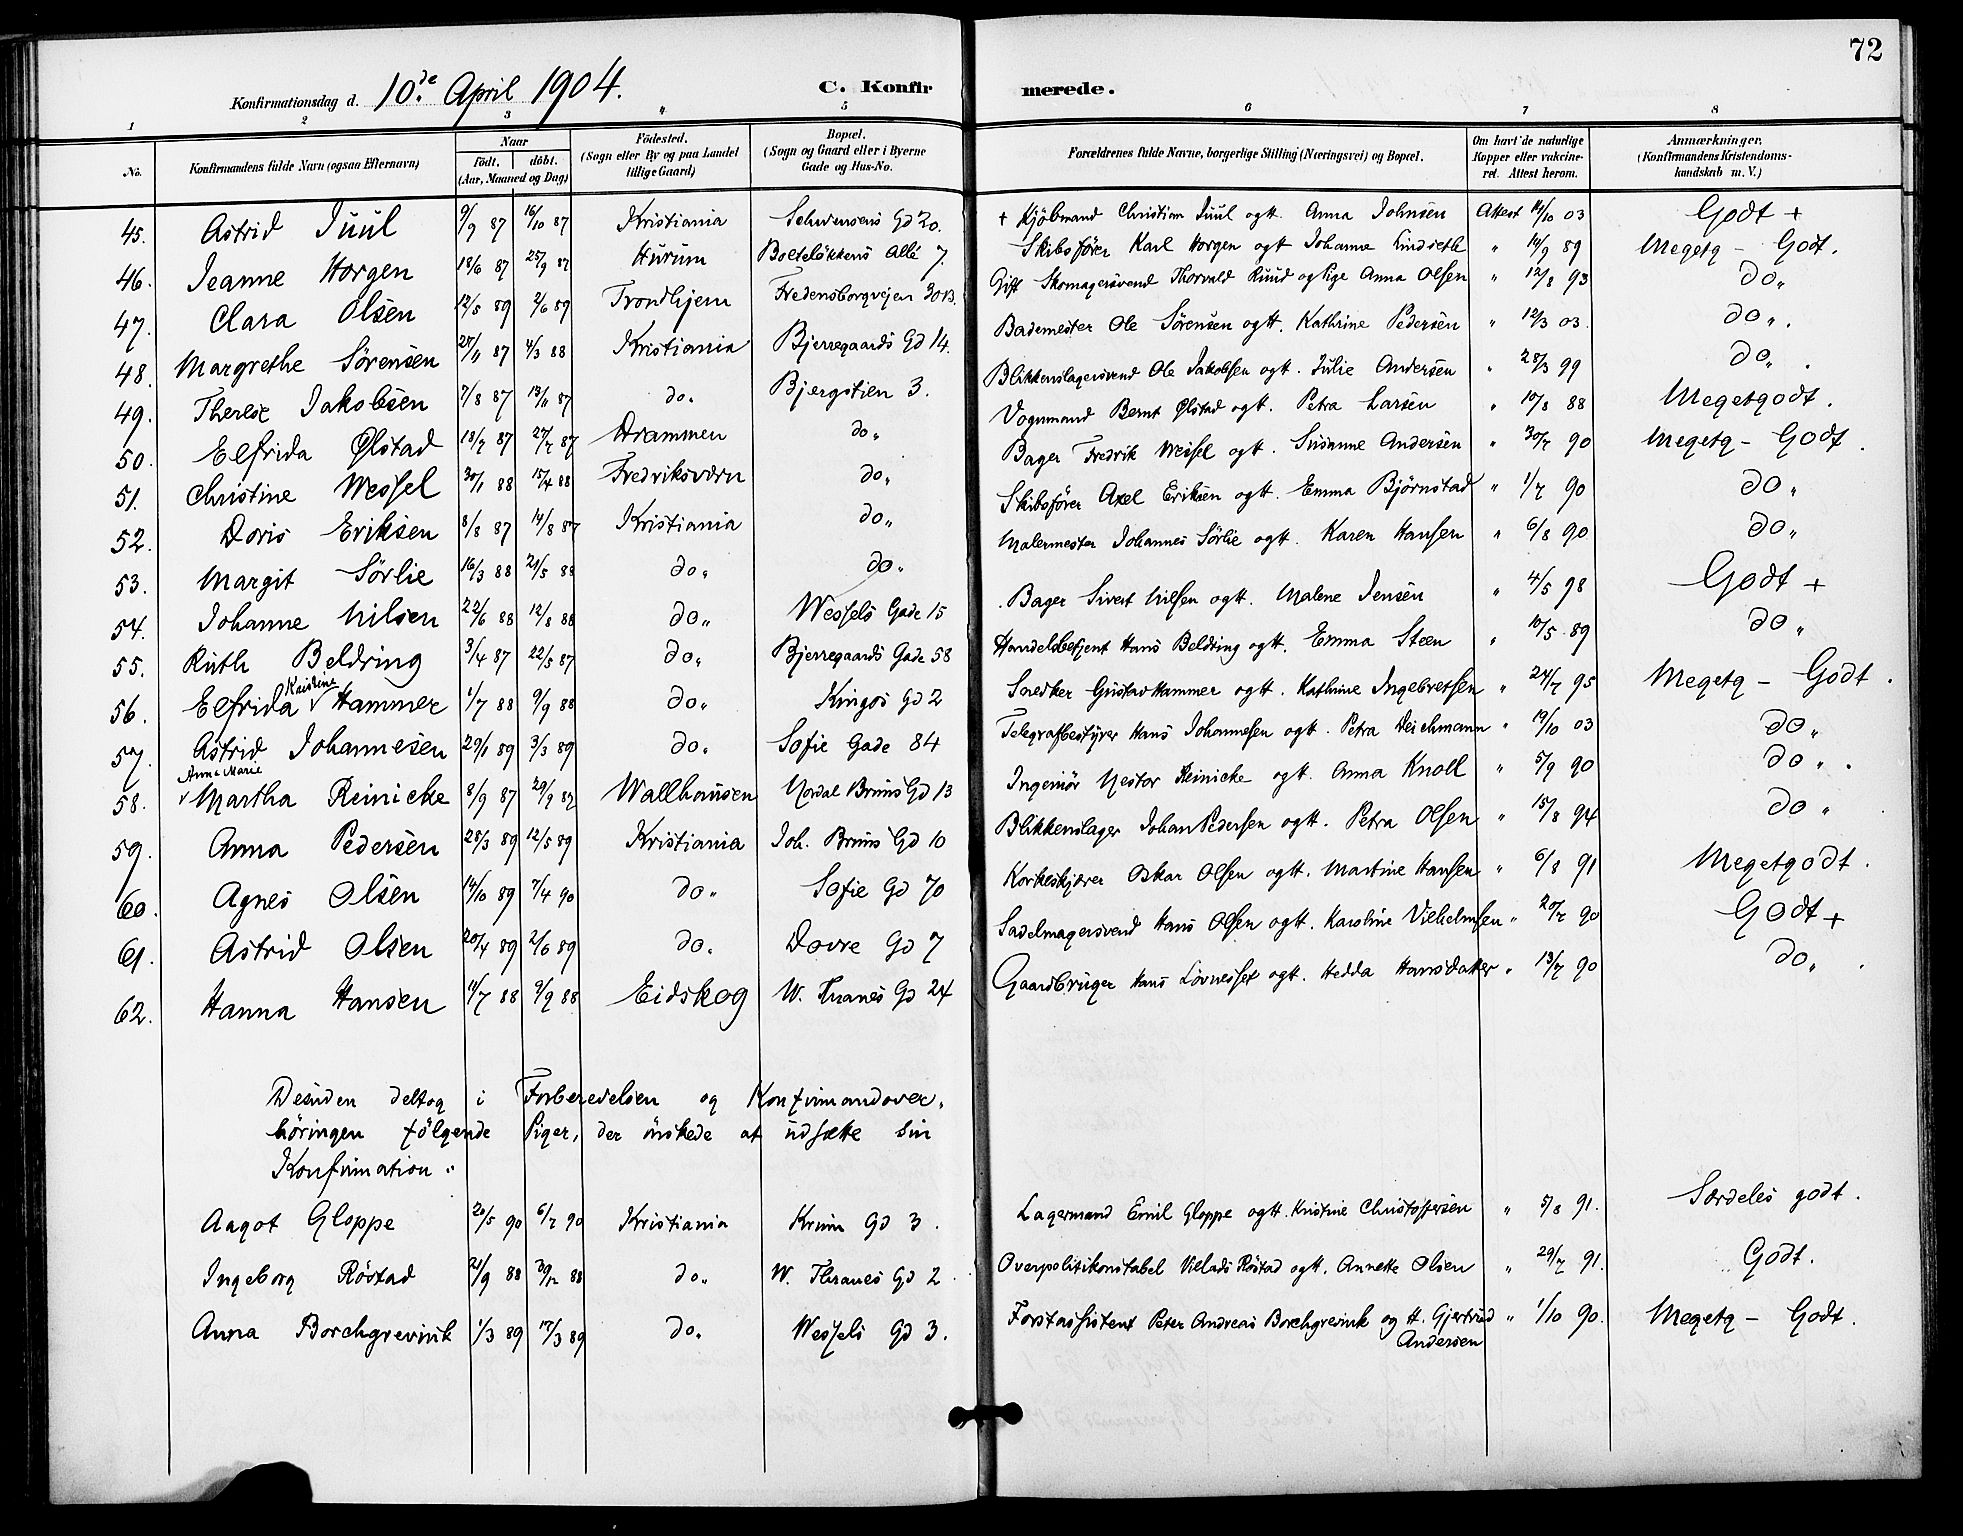 72
Konfirmationsdag d. 10de April 1904. C. Konfirmerede.
1 2 3 4 5 6 7 8
No. Konfirmandens fulde Navn (ogsaa Efternavn) Naar født. døbt. (Aar, Maaned og Dag) Fødested. (Sogn eller By og paa Landet tillige Gaard) Bopæl. (Sogn og Gaard eller i Byerne Gade og Hus-No. Forældrenes fulde Navne, borgerlige Stilling (Næringsvei) og Bopæl. Om havt de naturlige Kopper eller vakcineret. Attest herom. Anmærkninger. (Konfirmandens Kristendomskundskab m. V.)
45. Astrid Juul 9/9 87 16/10 87 Kristiania Schwensens Gd 20. + Kjöbmand Christian Juul ogtt. Anna Johnsen Attest 14/10 03 Godt +
46. Jeanne Horgen 18/6 87 25/9 87 Hurum Bolteløkkens Allé 7. Skibsfører Karl Horgen ogtt Johanne Lindseth " 14/9 89 Megetg - Godt.
47. Clara Olsen 12/5 89 2/6 89 Trondhjem Fredensborgvejen 30B. Gift Skomagersvend Thorvald Ruud og Pige Anna Olsen " 12/8 93 do "
48. Margrethe Sörensen 27/11 87 4/3 88 Kristiania Bjerregaards Gd 14. Bademester Ole Sörensen ogtt. Kathrine Pedersen " 12/3 03. do ".
49. Therese Jakobsen 7/8 87 13/11 87 do. Bjergstien 3. Blikkenslagersvend Ole Jakobsen ogtt. Julie Andersen " 28/3 99 do "
50. Elfrida Ølstad 18/7 87 27/7 87 Drammen do " Vognmand Bernt Ølstad ogtt. Petra Larsen " 10/8 88 Megetgodt.
51. Christine Wessel 30/1 88 15/4 88 Fredriksværn do " Bager Fredrik Wessel ogtt. Susanne Andersen " 30/7 90 Megetg - Godt.
52. Doris Eriksen 8/8 87 14/8 87 Kristiania do " Skibsfører Axel Eriksen ogtt. Emma Björnstad " 1/7 90 do "
53. Margit Sörlie 16/3 88 21/5 88 do " do " Malermester Johannes Sörlie ogtt. Karen Hansen " 6/8 90 do "
54. Johanne Nilsen 22/6 88 12/8 88 do " Wessels Gade 15 Bager Sivert Nilsen ogtt. Malene Jensen " 4/5 98 Godt +
55. Ruth Beldring 3/4 87 22/5 87 do " Bjerregaards Gade 58 Handelsbetjent Hans Beldring ogtt. Emma Steen " 10/5 89 do "
56. Elfrida Kristine Hammer 1/7 88 9/9 88 do " Kingos Gd 2 Snedker Gustav Hammer ogtt. Kathrine Ingebretsen " 24/7 95 Megetg - Godt.
57. Astrid Johannesen 29/1 89 3/3 89 do " Sofie Gade 84 Telegrafbestyrer Hans Johannesen ogtt. Petra Deichmann " 19/10 03 do "
58. Anna Marie Martha Reinicke 8/9 87 29/9 87 Wallhausen Nordal Bruns Gd 13 Ingeniör Nestor Reinicke ogtt. Anna Knoll " 5/9 90 do "
59. Anna Pedersen 28/3 89 12/5 89 Kristiania Joh. Bruns Gd 10 Blikkenslager Johan Pedersen ogtt. Petra Olsen " 15/8 94 do "
60. Agnes Olsen 14/10 89 7/4 90 do " Sofie Gd 70 Korkeskjærer Oskar Olsen ogtt. Martine Hansen " 6/8 91 Megetgodt.
61. Astrid Olsen 20/4 89 2/6 89 do " Dovre Gd 7 Sadelmagersvend Hans Olsen ogtt. Karoline Vilhelmsen " 20/7 90 Godt +
62. Hanna Hansen 11/7 88 9/9 88 Eidskog W. Thranes Gd 24 Gaardbruger Hans Lövnesset ogtt. Hedda Hansdatter " 13/7 90 do "
Desuden deltog i Forberedelsen og Konfirmandover-
höringen følgende Piger, der ønskede at udsætte sin
Konfirmation:
Aagot Gloppe 20/5 90 6/7 90 Kristiania Krum Gd 3. Lagermand Emil Gloppe ogtt. Kristine Christoffersen " 5/8 91. Særdeles godt.
Ingeborg Röstad 21/9 88 30/12 88 do " W. Thranes Gd 2. Overpolitikonstabel Villads Röstad ogtt. Annette Olsen " 29/7 91. Godt.
Anna Borchgrevink 1/3 89 17/3 89 do " Wessels Gd 3. Forstassistent Peter Andreas Borchgrevink og H. Gjertrud " 1/10 90. Megetg - Godt.
Andersen